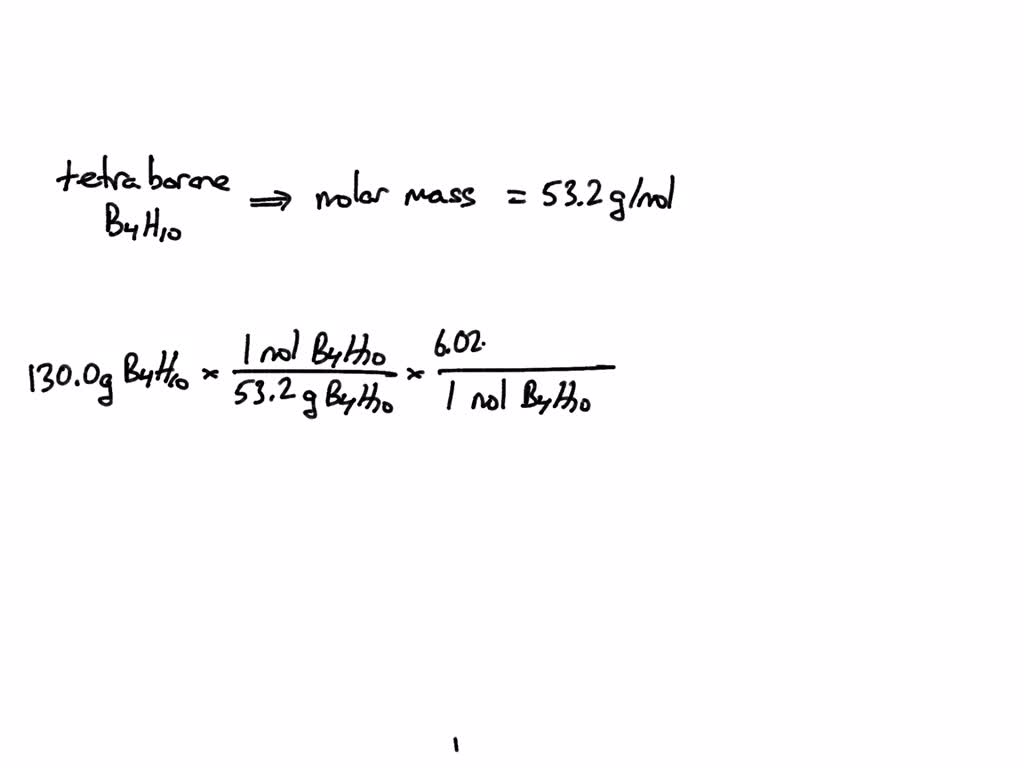 tetraborane
B₄H₁₀ ⟹ molar mass = 53.2 g/mol
130.0g B₄H₁₀ × 1 mol B₄H₁₀ / 53.2 g B₄H₁₀ × 6.02. / 1 mol B₄H₁₀
1